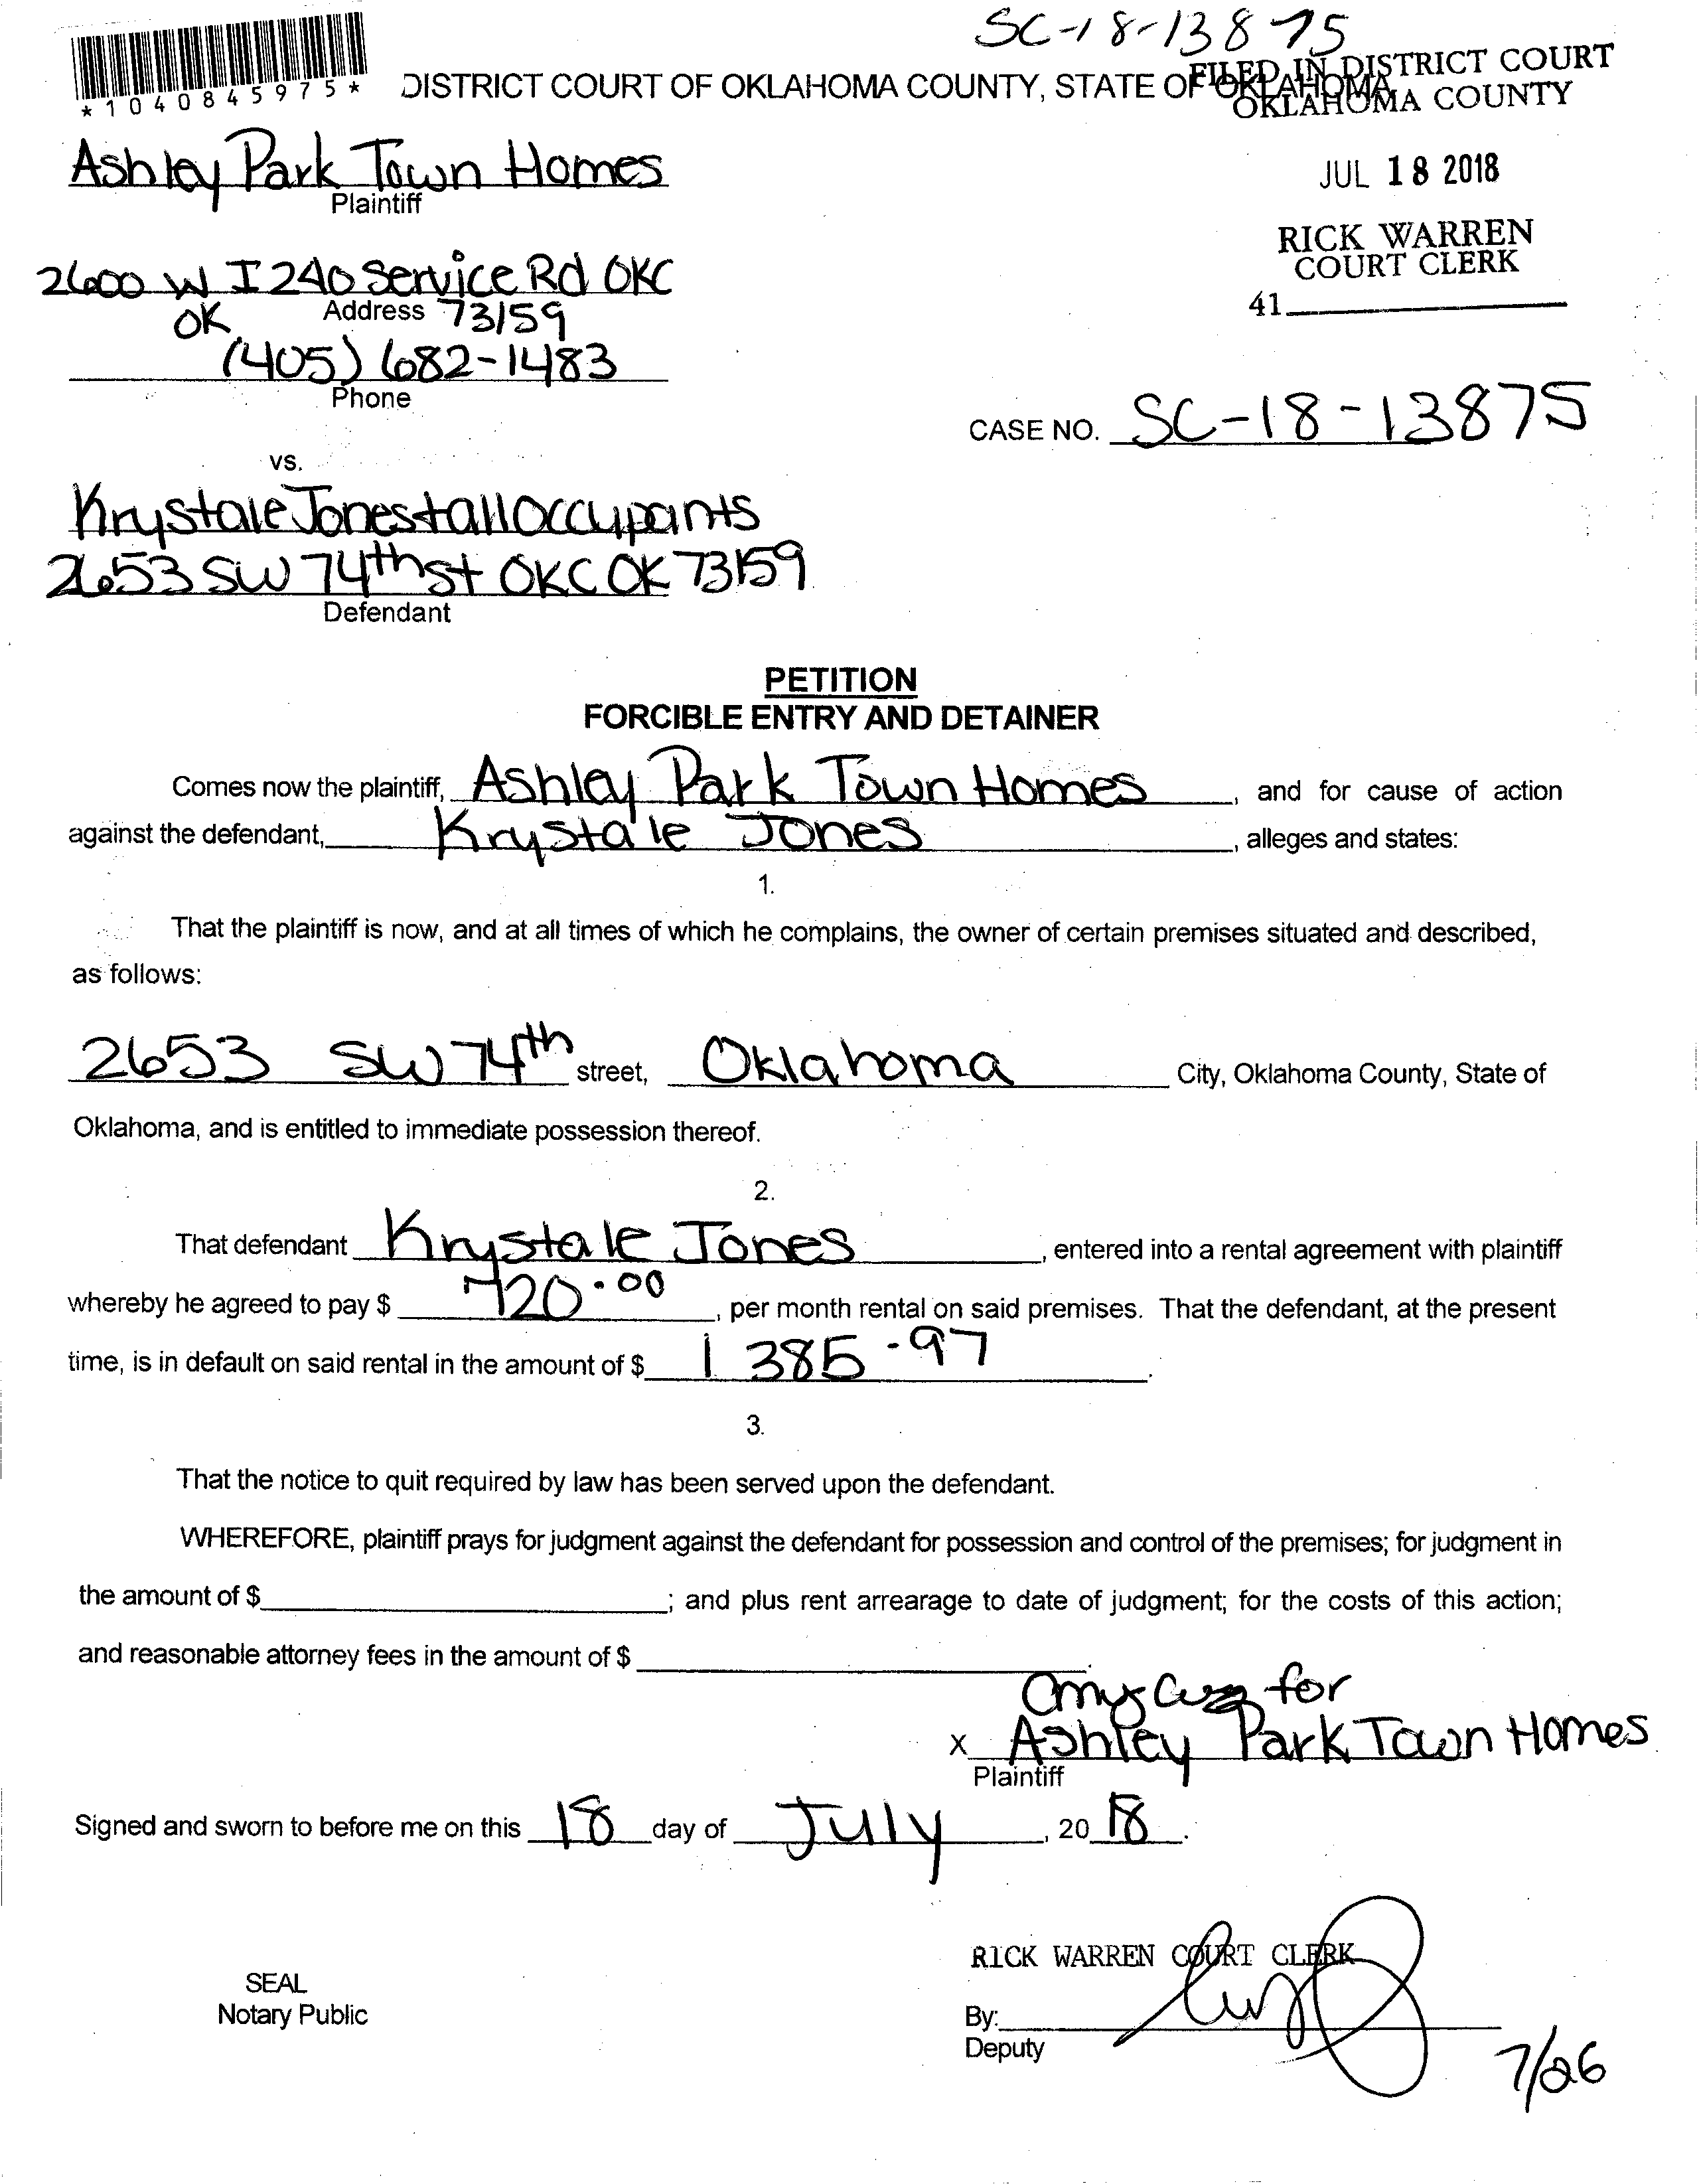 SC-18-13875
*1040845975*
DISTRICT COURT OF OKLAHOMA COUNTY, STATE OF OKLAHOMA
FILED IN DISTRICT COURT
OKLAHOMA COUNTY
Ashley Park Town Homes
Plaintiff
JUL 18 2018
RICK WARREN
COURT CLERK
41
2600 W I 240 Service Rd OKC
Address
OK 73159
(405) 682-1483
Phone
CASE NO. SC-18-13875
vs.
Krystale Jones + all Occupants
2653 SW 74th st OKC OK 73159
Defendant
PETITION
FORCIBLE ENTRY AND DETAINER
Comes now the plaintiff, Ashley Park Town Homes, and for cause of action
against the defendant, Krystale Jones, alleges and states:
1.
That the plaintiff is now, and at all times of which he complains, the owner of certain premises situated and described,
as follows:
2653 SW 74th street, Oklahoma City, Oklahoma County, State of
Oklahoma, and is entitled to immediate possession thereof.
2.
That defendant Krystale Jones, entered into a rental agreement with plaintiff
whereby he agreed to pay $ 720.00, per month rental on said premises. That the defendant, at the present
time, is in default on said rental in the amount of $ 1 385.97.
3.
That the notice to quit required by law has been served upon the defendant.
WHEREFORE, plaintiff prays for judgment against the defendant for possession and control of the premises; for judgment in
the amount of $; and plus rent arrearage to date of judgment; for the costs of this action;
and reasonable attorney fees in the amount of $.
for
x Ashley Park Town Homes
Plaintiff
Signed and sworn to before me on this 18 day of July, 2018.
RICK WARREN COURT CLERK
SEAL
Notary Public
By:
Deputy
7/26